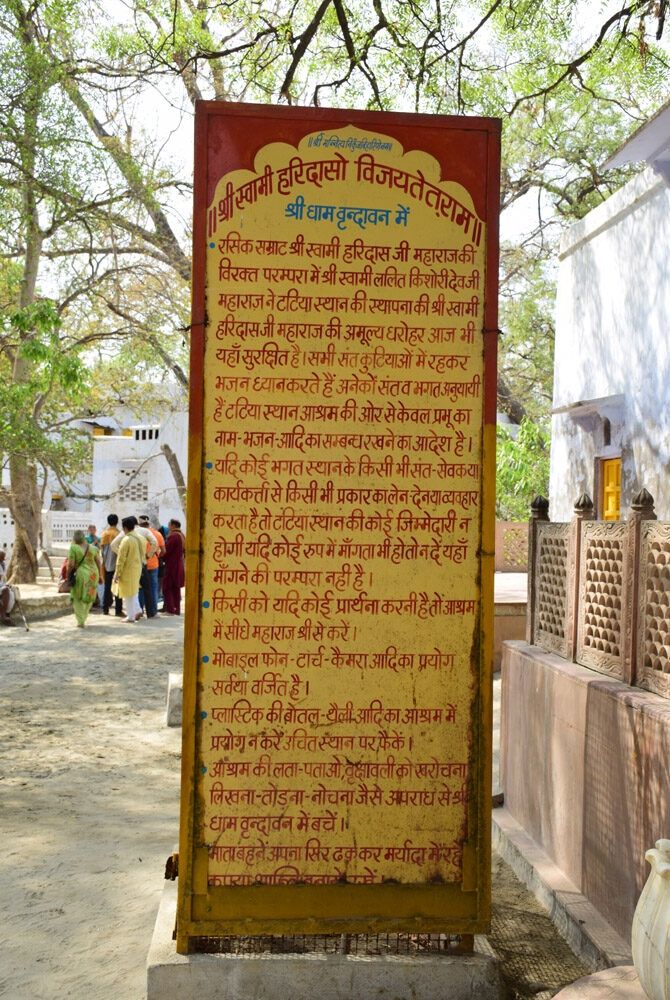 ॥श्री स्वामी हरिदासो विजयतेतराम॥
श्री धाम वृन्दावन में
रसिक सम्राट श्री स्वामी हरिदास जी महाराजकी
विरक्त परम्परा में श्री स्वामी ललित किशोरी देवजी
महाराज ने टटिया स्थान की स्थापना की श्री स्वामी
हरिदासजी महाराज की अमूल्य धरोहर आज भी
यहाँ सुरक्षित है। सभी संत कुटियाओं में रहकर
भजन ध्यान करते हैं अनेकों संत व भगत अनुयायी
हैं टटिया स्थान आश्रम की ओर से केवल प्रभू का
नाम-भजन-आदि का सम्बन्ध रखने का आदेश है।
यदि कोई भगत स्थान के किसी भी संत-सेवक या
कार्यकर्त्ता से किसी भी प्रकार का लेन-देन या व्यवहार
करता है तो टंटिया स्थान की कोई जिम्मेदारी न
होगी यदि कोई रूप में माँगता भी हो तो न दें यहाँ
माँगने की परम्परा नहीं है।
किसी को यदि कोई प्रार्थना करनी है तो आश्रम
में सीधे महाराज श्री से करें।
मोबाइल फोन-टार्च-कैमरा आदि का प्रयोग
सर्वथा वर्जित है।
प्लास्टिक की बोतल-थैली-आदि का आश्रम में
प्रयोग न करें उचित स्थान पर फैकें।
आश्रम की लता-पताओं, वृक्षावली को खरोचना
लिखना-तोड़ना-नोचना जैसे अपराध से श्री
धाम वृन्दावन में बचें।
माता बहनें अपना सिर ढककर मर्यादा में रहें
कृपया शान्ति बनाये रखें